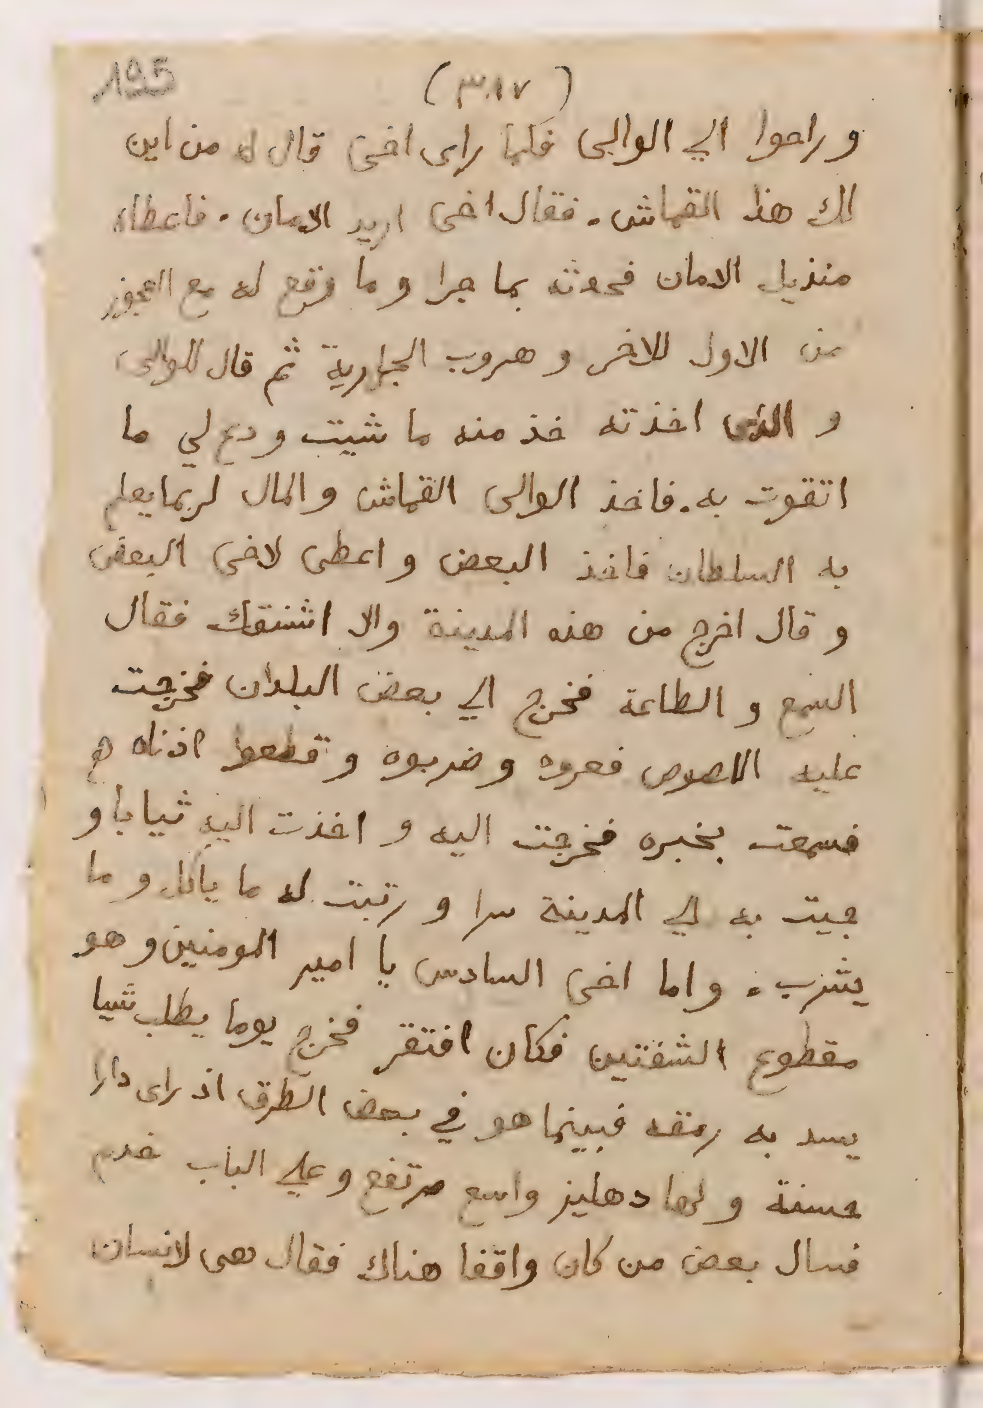 195
(٣١٧)
و راحوا الي الوالى فلما راى اخى قال له من اين
لك هذا القماش. فقال اخى اريد الامان. فاعطاه
منديل الامان فحدثه بما جرا و ما وقع له مع العجوز
من الاول للاخر و هروب الجارية ثم قال للوالى
و الذى اخذته خذ منه ما شيت و دع لي ما
اتقوت به. فاخذ الوالى القماش و المال لربما يعلم
به السلطان فاخذ البعض و اعطى لاخى البعض
و قال اخرج من هذه المدينة والا اشنقك فقال
السمع و الطاعة فخرج الي بعض البلدان فخرجت
عليه اللصوص فعروه و ضربوه و قطعوا اذناه
فسمعت بخبره فخرجت اليه و اخذت اليه ثيابا و
جيت به الي المدينة سرا و رتبت له ما ياكل و ما
يشرب. و اما اخى السادس يا امير المومنين و هو
مقطوع الشفتين فكان افتقر فخرج يوما يطلب شيا
يسد به رمقه فبينما هو في بعض الطرق اذ راى دارا
حسنة و لها دهليز واسع مرتفع و علي الباب خدم
فسال بعض من كان واقفا هناك فقال هى لانسان